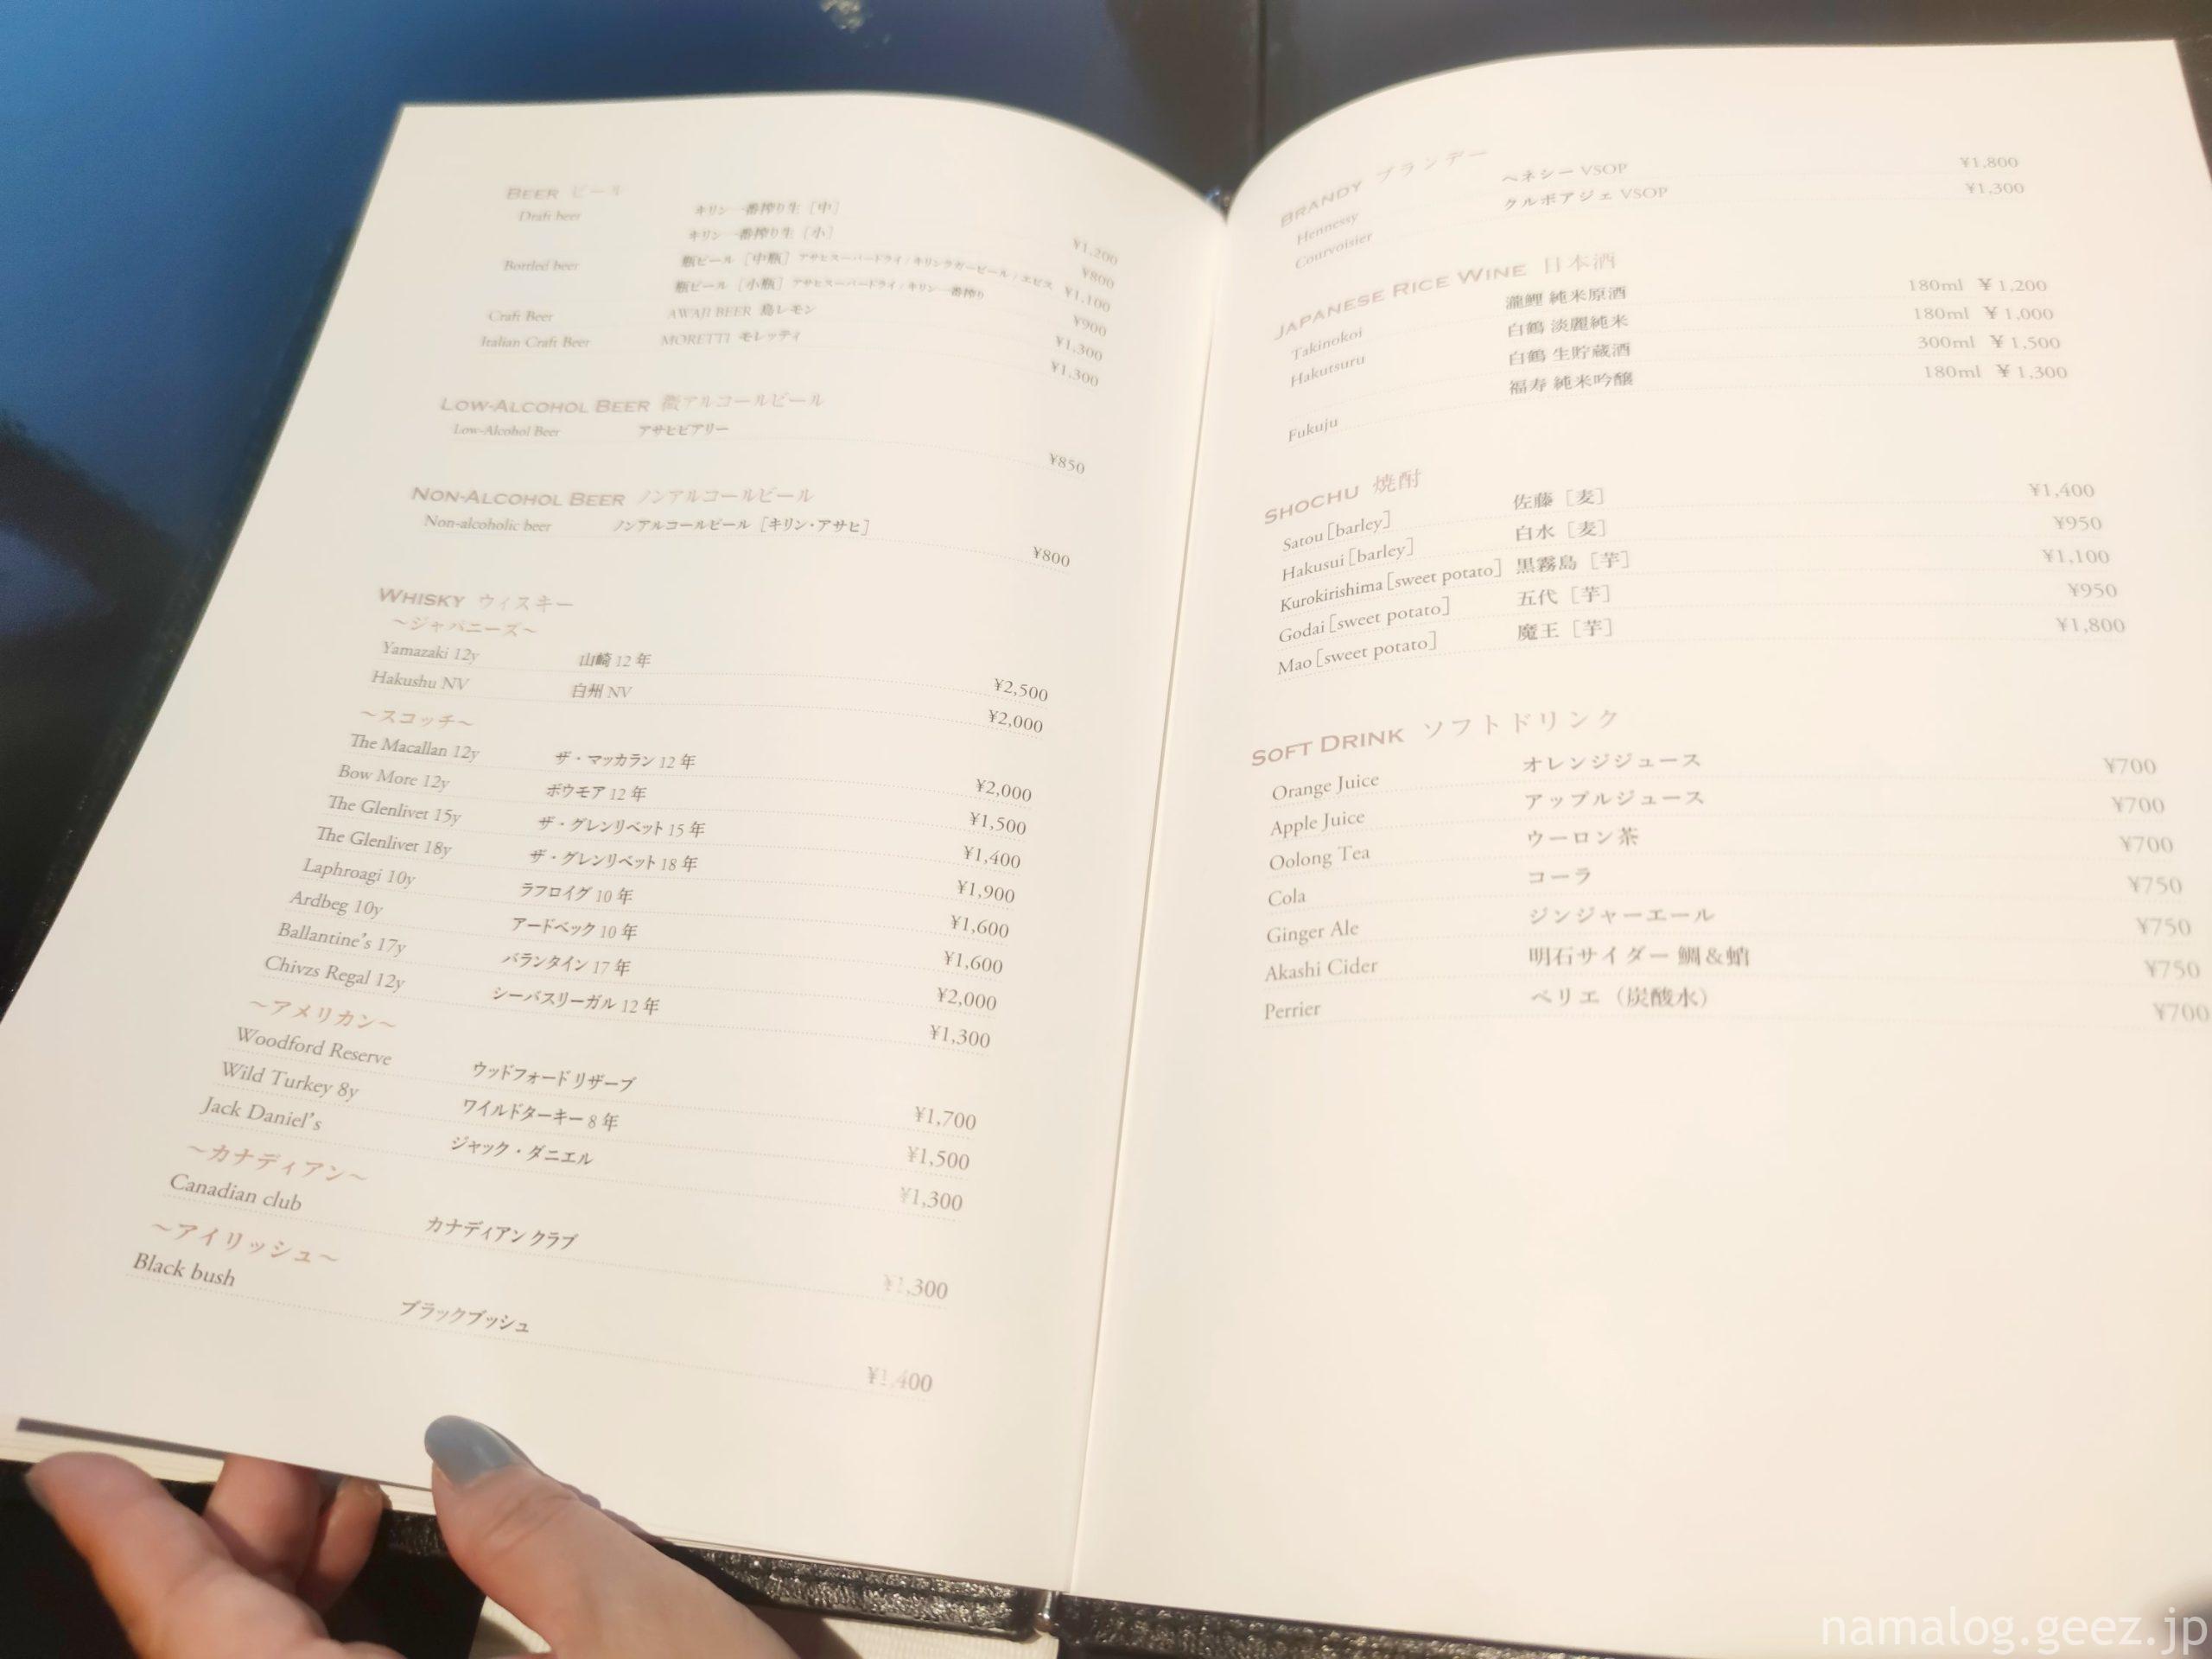 BEER ビール
Draft beer キリン 一番搾り生［中］ ¥1,200
キリン 一番搾り生［小］ ¥800
Bottled beer 瓶ビール［中瓶］アサヒスーパードライ / キリンラガービール / エビス ¥1,100
瓶ビール［小瓶］アサヒスーパードライ / キリン一番搾り ¥900
Craft Beer AWAJI BEER 島レモン ¥1,300
Italian Craft Beer MORETTI モレッティ ¥1,300
LOW-ALCOHOL BEER 微アルコールビール
Low-Alcohol Beer アサヒビアリー ¥850
NON-ALCOHOL BEER ノンアルコールビール
Non-alcoholic beer ノンアルコールビール［キリン・アサヒ］ ¥800
WHISKY ウィスキー
～ジャパニーズ～
Yamazaki 12y 山崎 12 年 ¥2,500
Hakushu NV 白州 NV ¥2,000
～スコッチ～
The Macallan 12y ザ・マッカラン 12 年 ¥2,000
Bow More 12y ボウモア 12 年 ¥1,500
The Glenlivet 15y ザ・グレンリベット 15 年 ¥1,400
The Glenlivet 18y ザ・グレンリベット 18 年 ¥1,900
Laphroagi 10y ラフロイグ 10 年 ¥1,600
Ardbeg 10y アードベック 10 年 ¥1,600
Ballantine's 17y バランタイン 17 年 ¥2,000
Chivzs Regal 12y シーバスリーガル 12 年 ¥1,300
～アメリカン～
Woodford Reserve ウッドフォード リザーブ ¥1,700
Wild Turkey 8y ワイルドターキー 8 年 ¥1,500
Jack Daniel's ジャック・ダニエル ¥1,300
～カナディアン～
Canadian club カナディアン クラブ ¥1,300
～アイリッシュ～
Black bush ブラックブッシュ ¥1,400
BRANDY ブランデー
Hennessy ヘネシー VSOP ¥1,800
Courvoisier クルボアジェ VSOP ¥1,300
JAPANESE RICE WINE 日本酒
Takinokoi 瀧鯉 純米原酒 180ml ¥1,200
Hakutsuru 白鶴 淡麗純米 180ml ¥1,000
白鶴 生貯蔵酒 300ml ¥1,500
Fukuju 福寿 純米吟醸 180ml ¥1,300
SHOCHU 焼酎
Satou［barley］ 佐藤［麦］ ¥1,400
Hakusui［barley］ 白水［麦］ ¥950
Kurokirishima［sweet potato］ 黒霧島［芋］ ¥1,100
Godai［sweet potato］ 五代［芋］ ¥950
Mao［sweet potato］ 魔王［芋］ ¥1,800
SOFT DRINK ソフトドリンク
Orange Juice オレンジジュース ¥700
Apple Juice アップルジュース ¥700
Oolong Tea ウーロン茶 ¥700
Cola コーラ ¥750
Ginger Ale ジンジャーエール ¥750
Akashi Cider 明石サイダー 鯛＆蛸 ¥750
Perrier ペリエ（炭酸水） ¥700
namalog.geez.jp